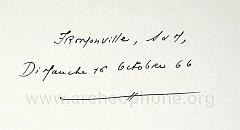 Fromonville, S&M,
Dimanche 16 Octobre 66
www.archeophone.org